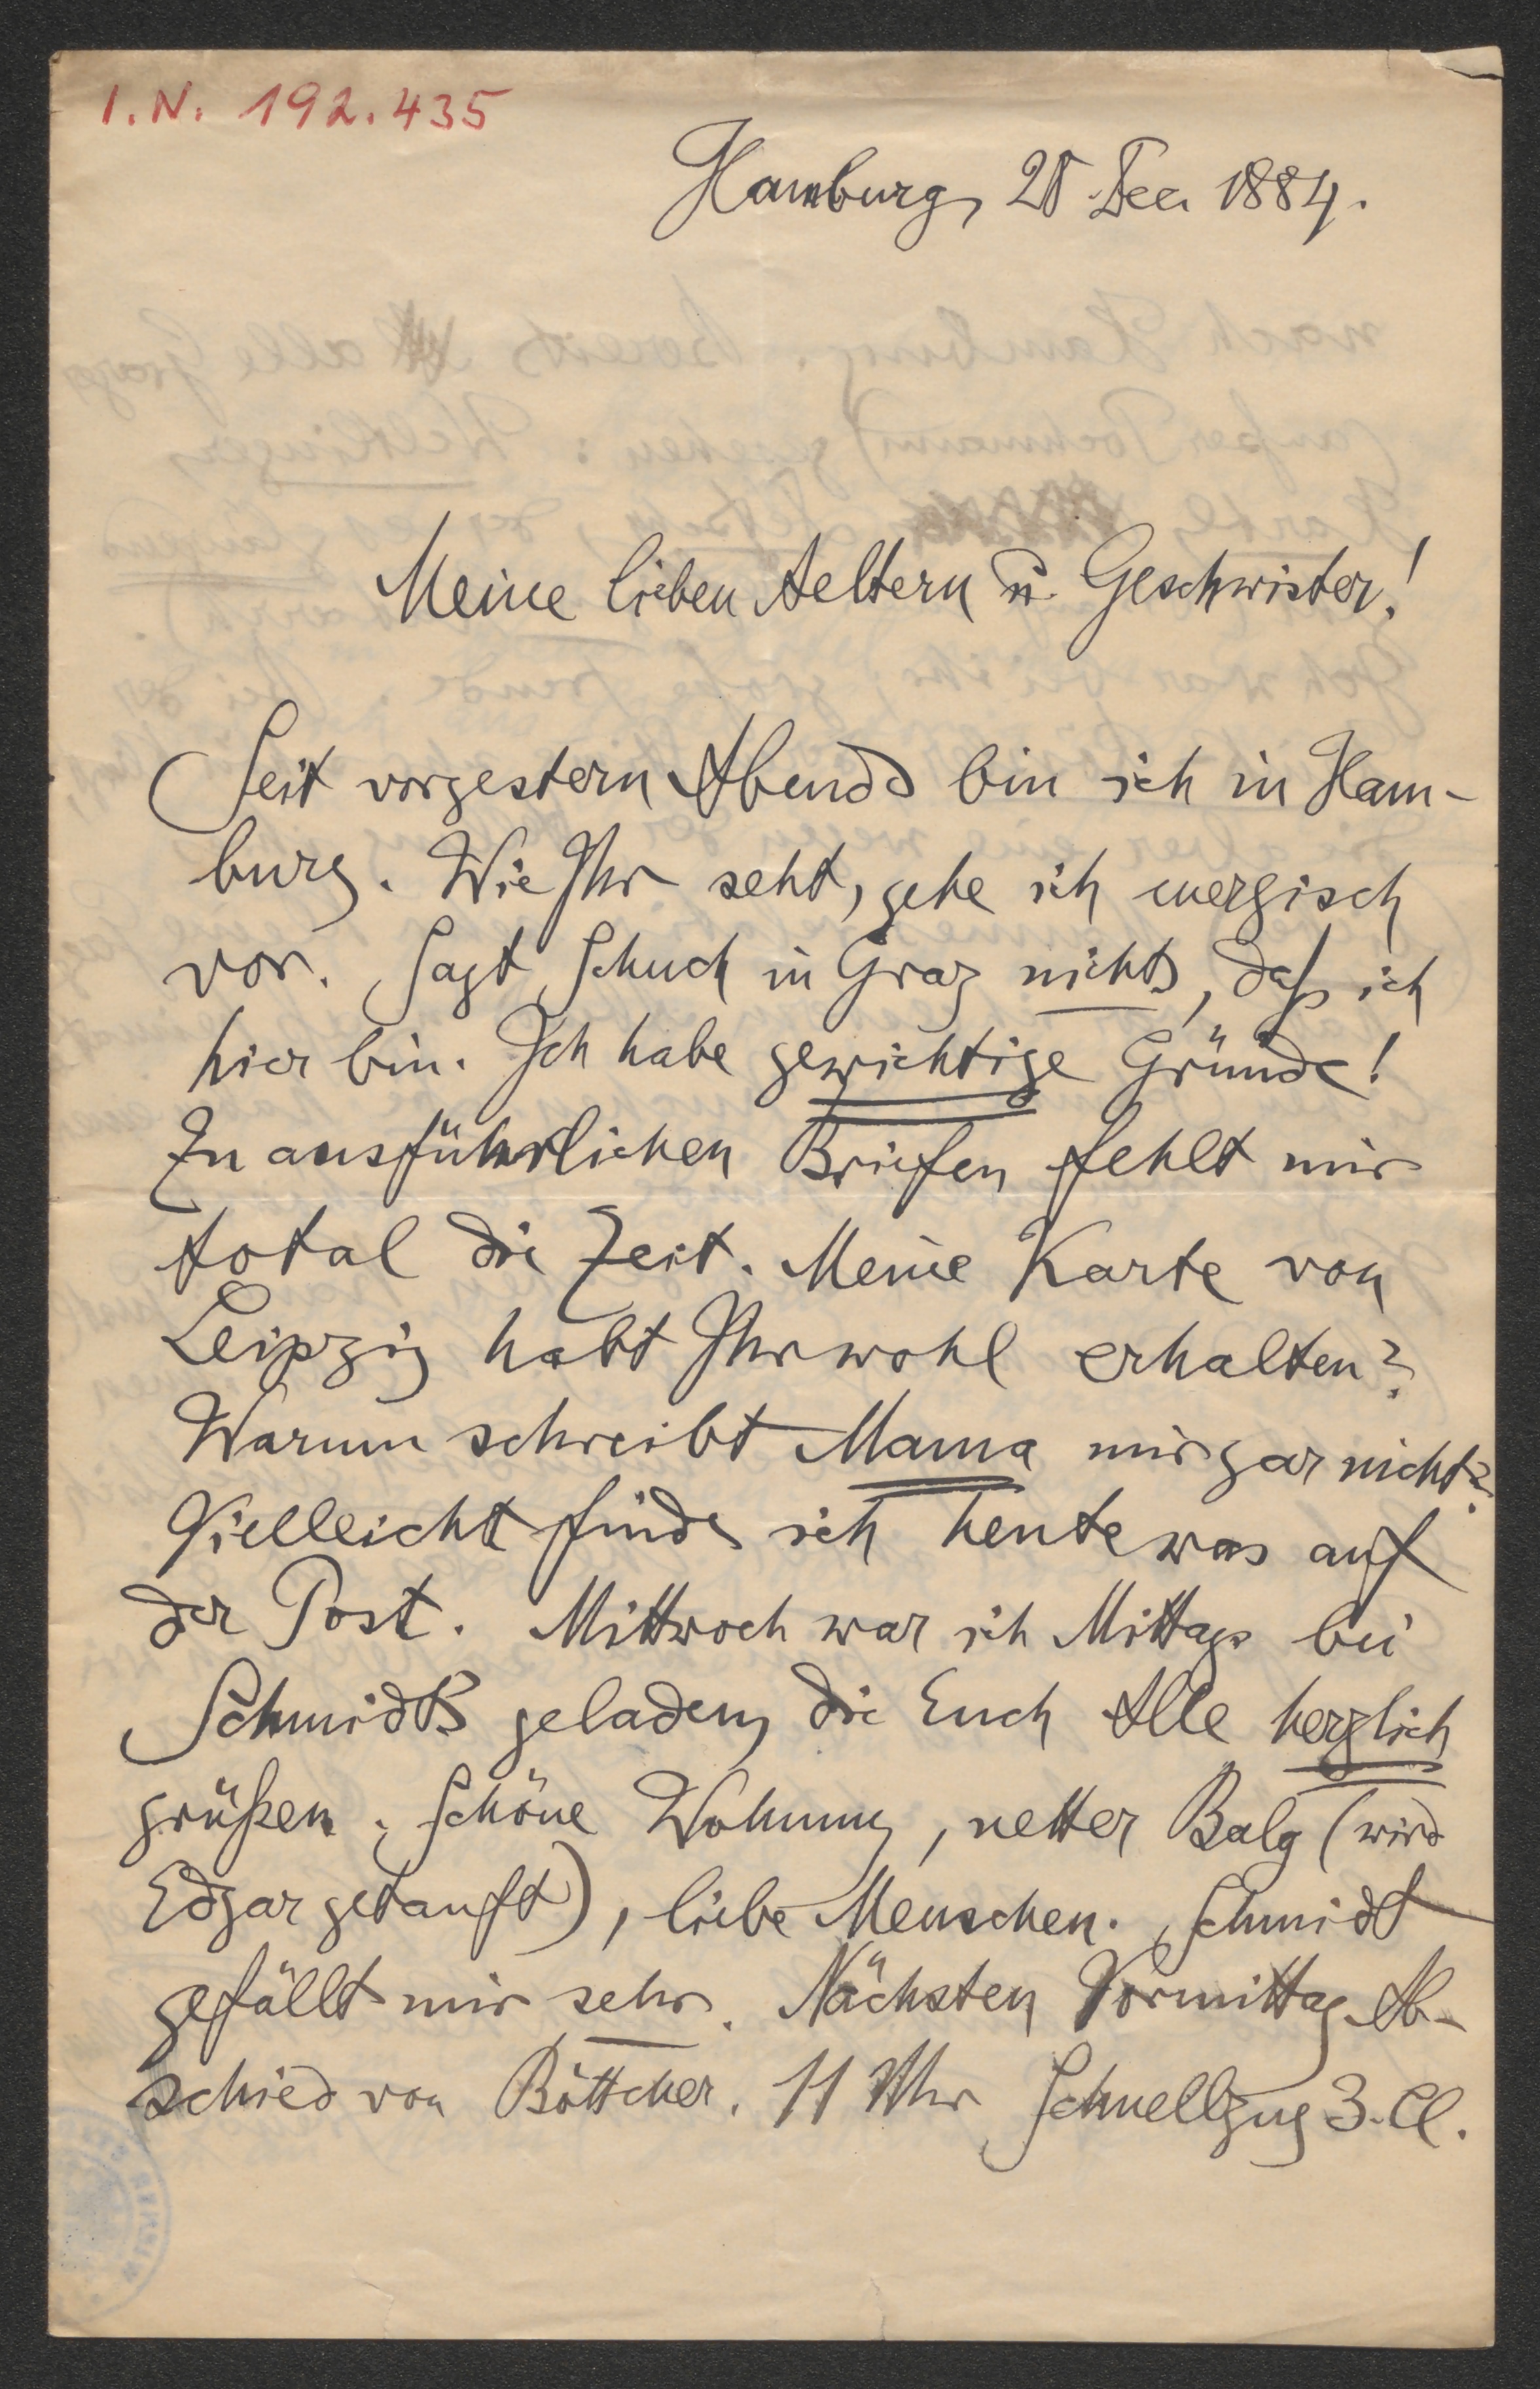 I.N. 192.435
Hamburg, Dec. 1884.
Meine lieben Aeltern u. Geschwister!
Seit vorgestern Abends bin ich in Ham-
burg. Wie Ihr seht, gehe ich energisch
vor. Sagt Schuch in Graz nichts, daß ich
hier bin. Ich habe gewichtige Gründe!
Zu ausführlichen Briefen fehlt mir
total die Zeit. Meine Karte von
Leipzig habt Ihr wohl erhalten?
Warum schreibt Mama mir gar nicht?
Vielleicht finde ich heute was auf
der Post. Mittwoch war ich Mittags bei
Schmidts geladen, die Euch Alle herzlich
grüßen. Schöne Wohnung, netter Balg (wird
Edgar getauft), liebe Menschen. Schmidt
gefällt mir sehr. Nächsten Vormittag Ab-
schied von Böttcher. 11 Uhr Schnellzug 3. Cl.